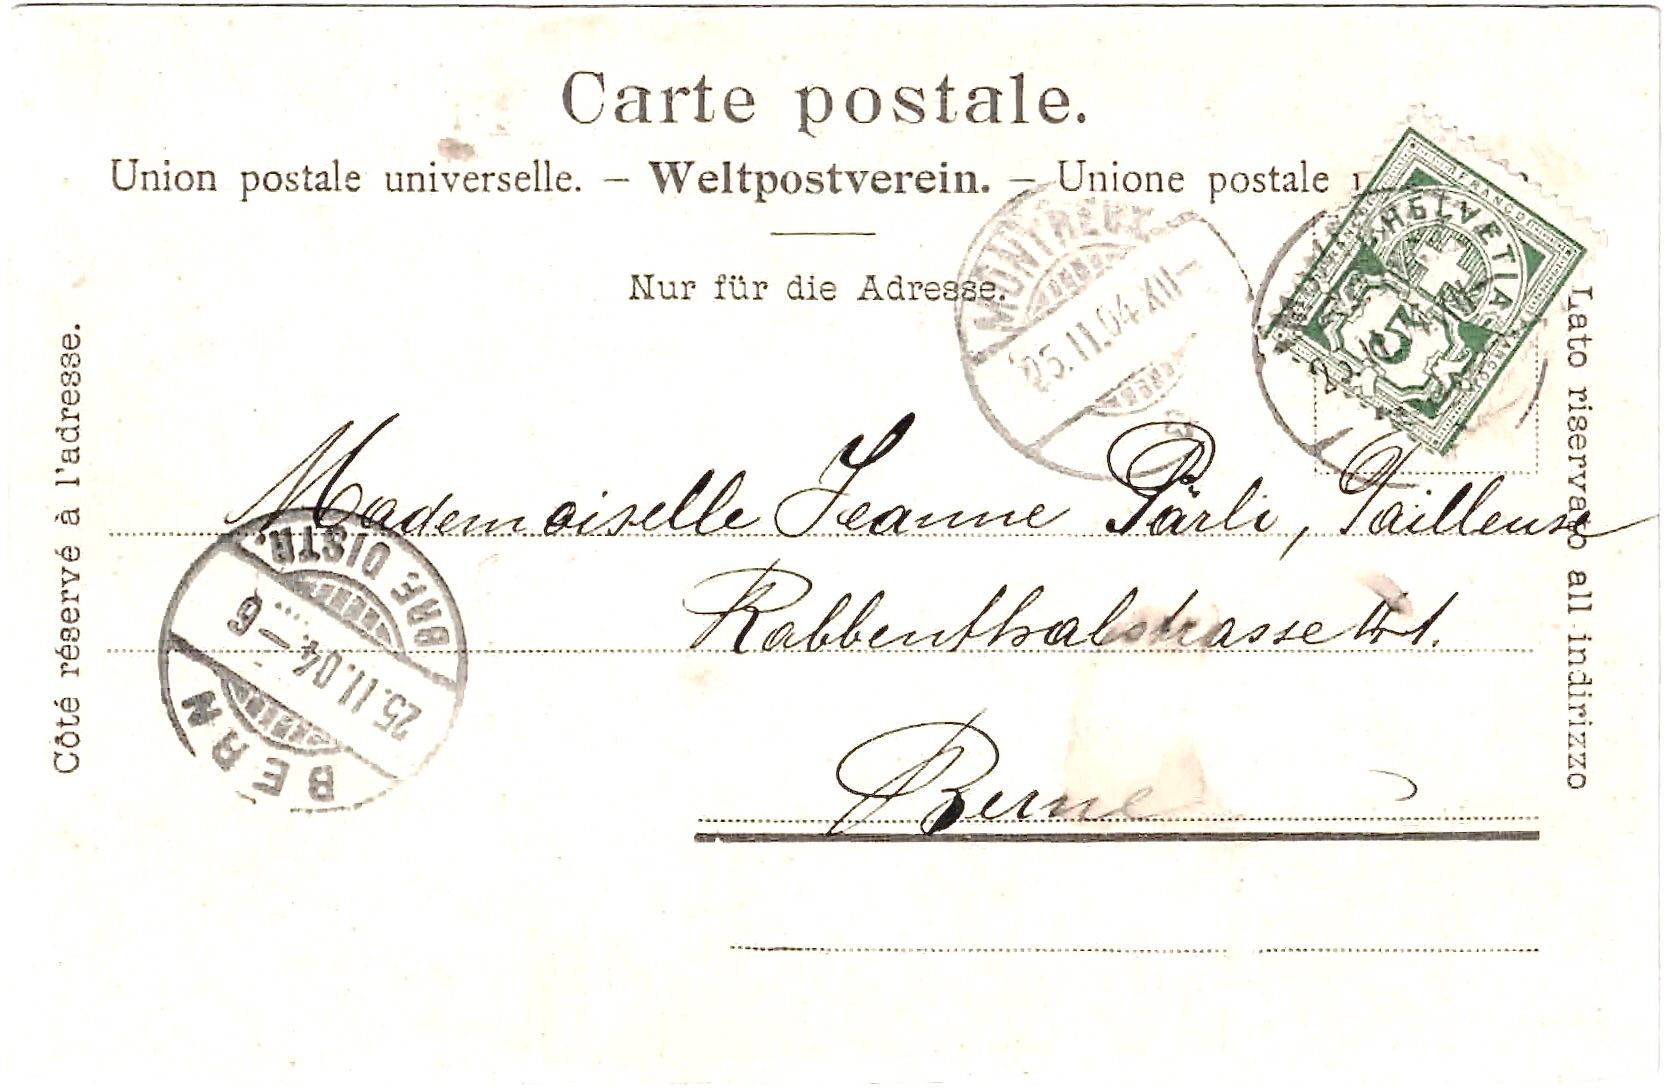 Carte postale.
Union postale universelle. – Weltpostverein. – Unione postale
Nur für die Adresse.
Côté réservé à l'adresse.
Lato riservato all indirizzo
HELVETIA
FRANCO
5
MONTREUX
25.11.04.XII–
Mademoiselle Jeanne Pärli, Tailleuse
Rabbenthalstrasse
Berne
BERN
25.11.04.–6
BRF. DISTR.